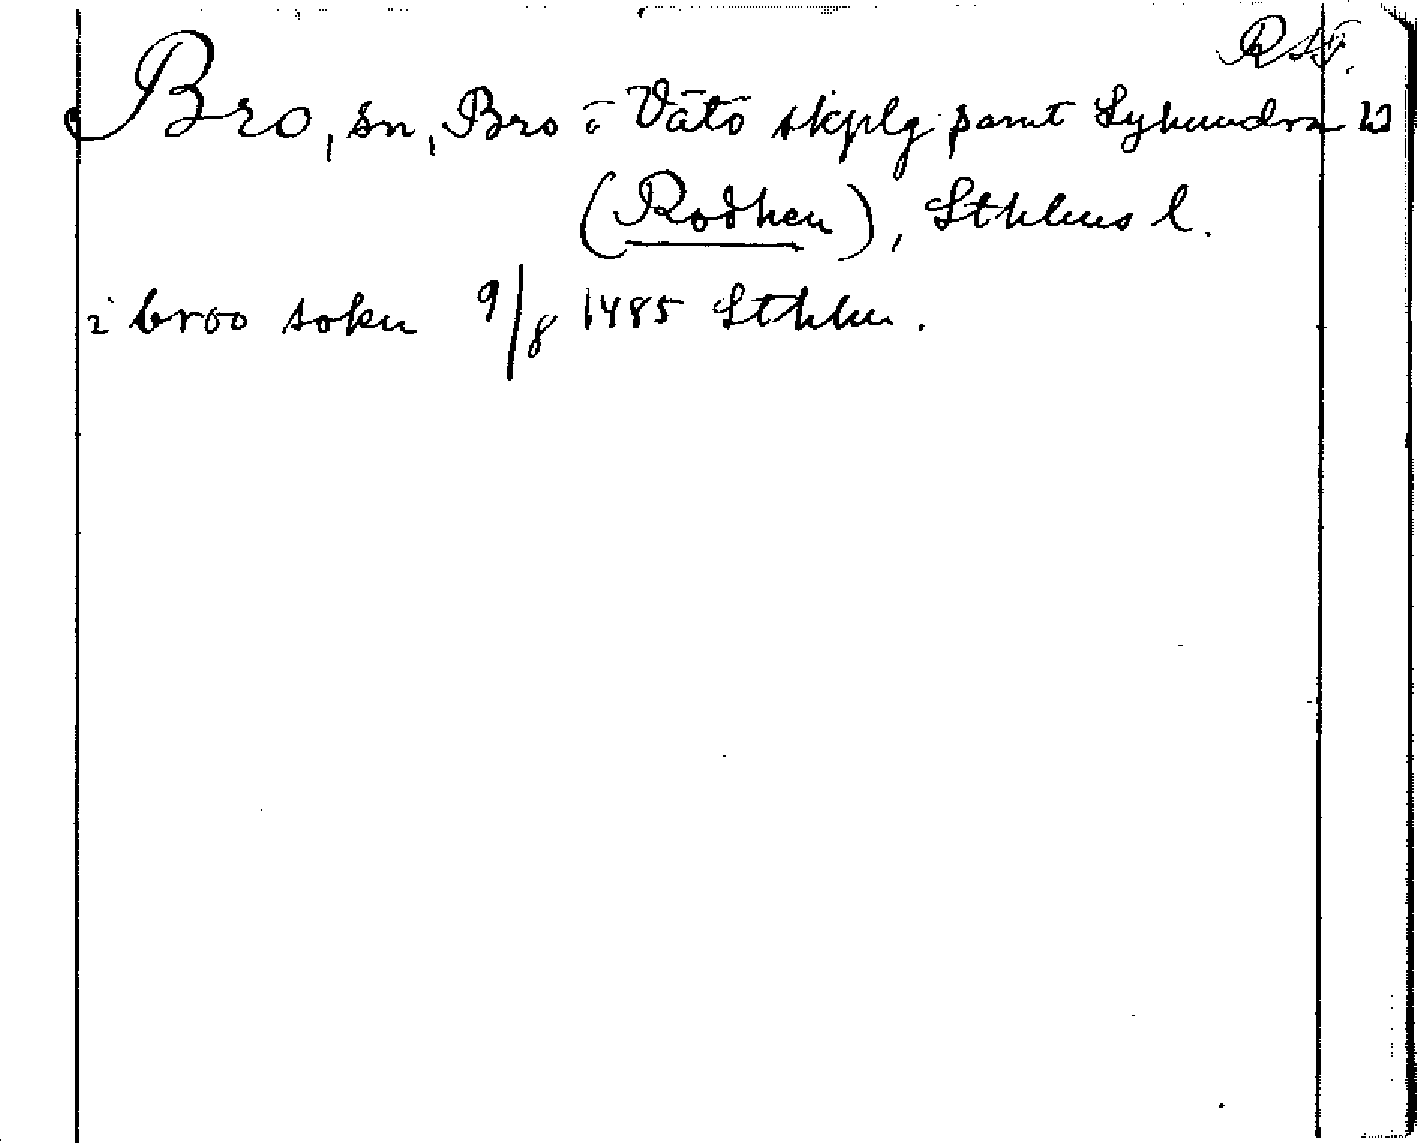 Bro, sn, Bro o Vätö skplg samt Lyhundra hd
(Rodhen), Sthlms l.
i broo sokn 9/8 1485 Sthlm.